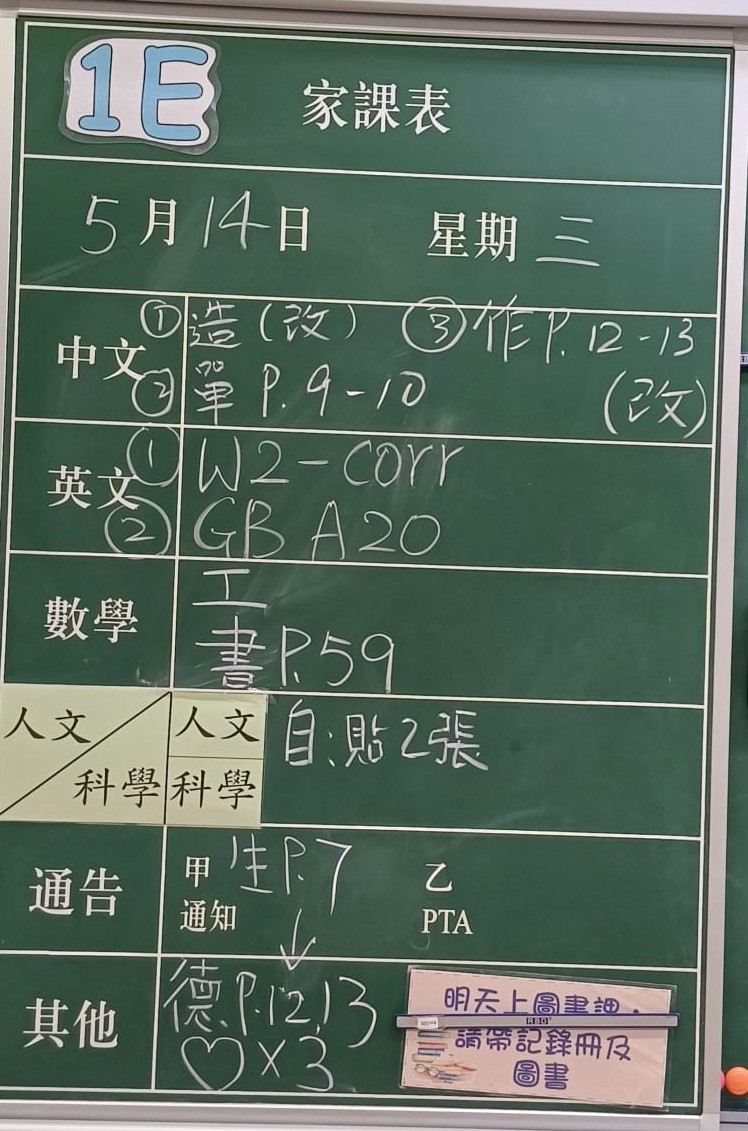 1E
家課表
5月14日 星期三
中文 ①造(改) ③作P.12-13
②單P.9-10 (改)
英文 ①W2-corr
②GB A20
數學 工
書P.59
人文 人文 自:貼2張
科學 科學
通告 甲 生P.7 乙
通知 PTA
↓
其他 德P.12,13
♡×3
明天上圖書課，
請帶記錄冊及
圖書